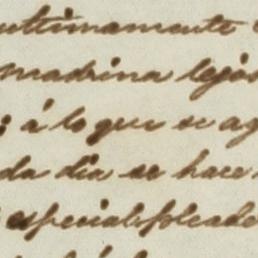 ultimamente
madrina lejos
; á lo que se ag
da dia se hace
especial